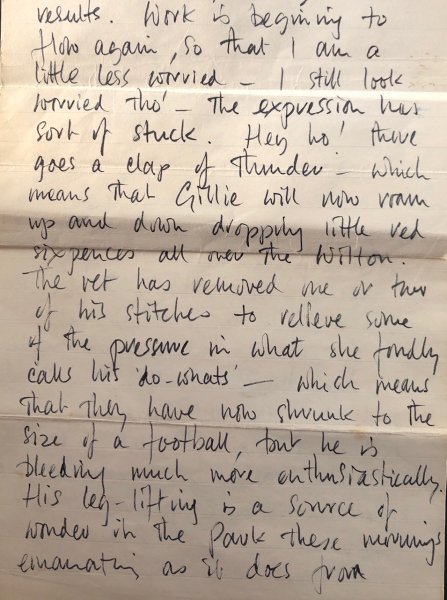 results. Work is beginning to
flow again, so that I am a
little less worried – I still look
worried tho' – the expression has
sort of stuck. Hey ho! there
goes a clap of thunder – which
means that Gillie will now roam
up and down dropping little red
sixpences all over the Wilton.
The vet has removed one or two
of his stitches to relieve some
of the pressure in what she fondly
calls his 'do-whats' – which means
that they have now shrunk to the
size of a football, but he is
bleeding much more enthusiastically.
His leg-lifting is a source of
wonder in the Park these mornings
emanating as it does from